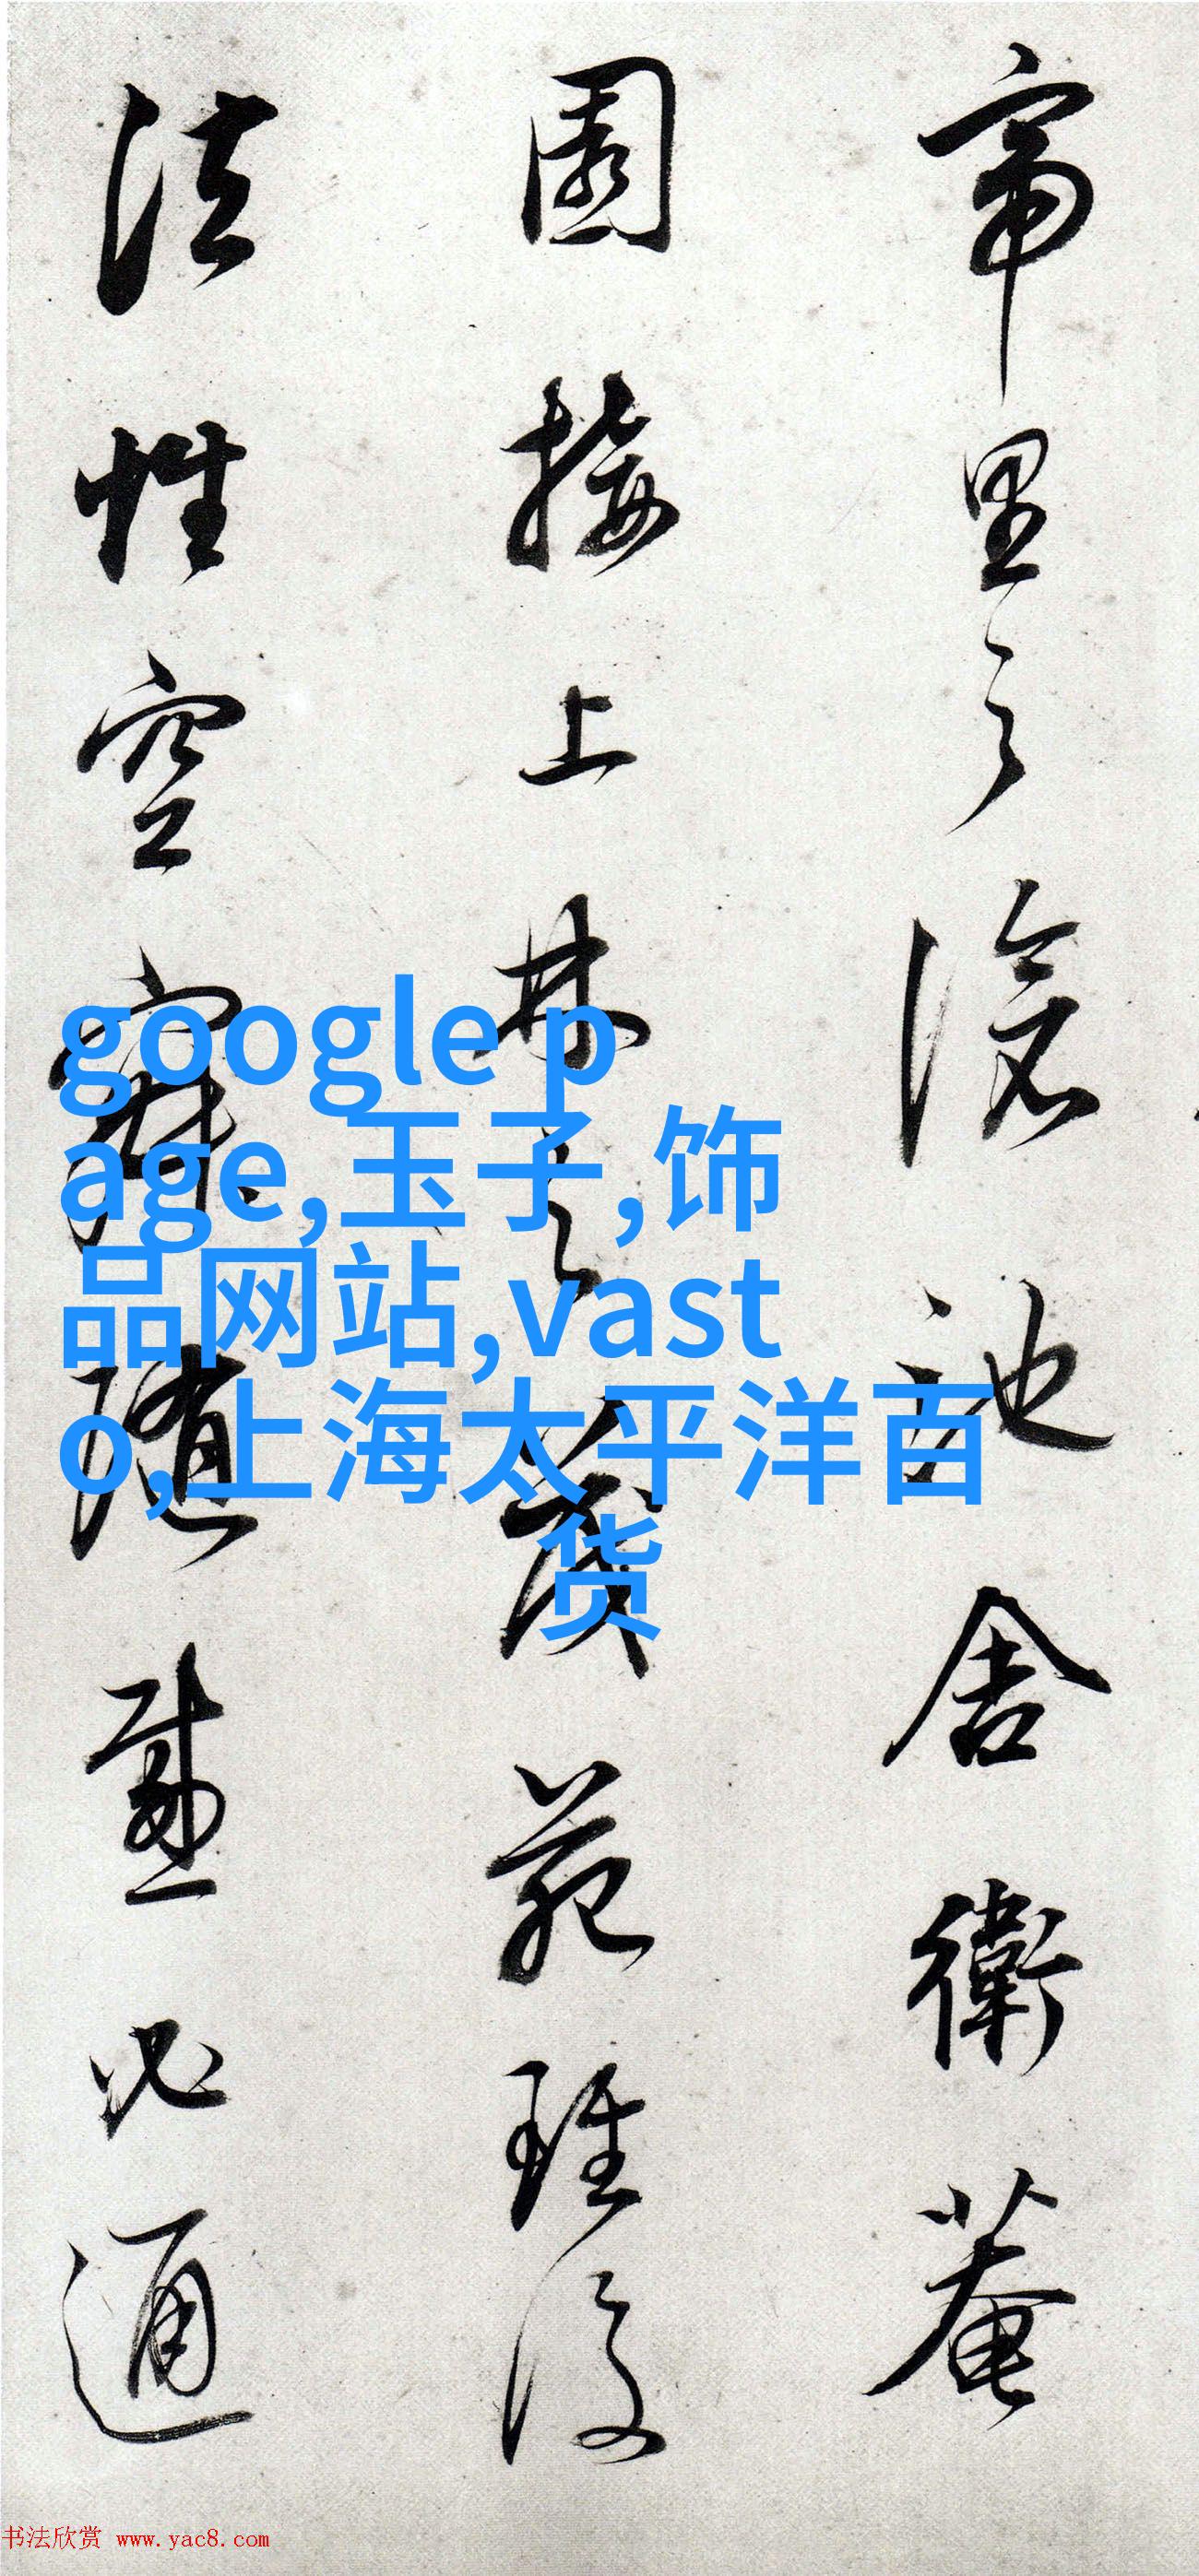 帝里之滄池舍衛菴
園接上林之茂苑雖復
法性空寂隨感必通
google p
age,玉子,饰
品网站,vast
o,上海太平洋百
货
书法欣赏 www.yac8.com